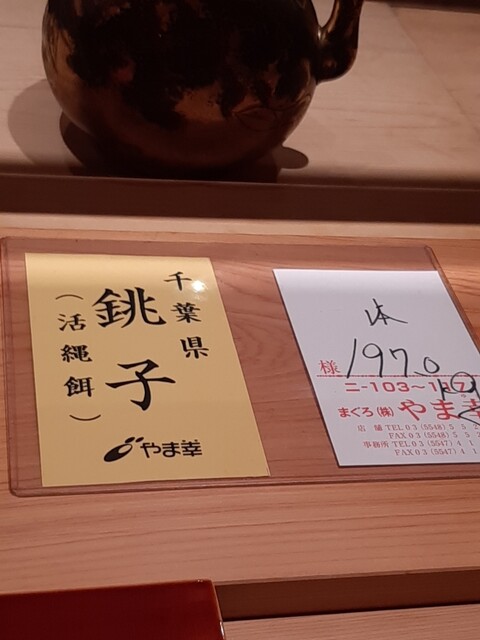 千葉県
銚子
（活縄餌）
やま幸
本
様 197.0
ニ-103～1
まぐろ（株）やま幸
店 舗 TEL 03 (5548) 5 5
FAX 03 (5548) 5 5
事務所 TEL 03 (5547) 4 1
FAX 03 (5547) 4 1